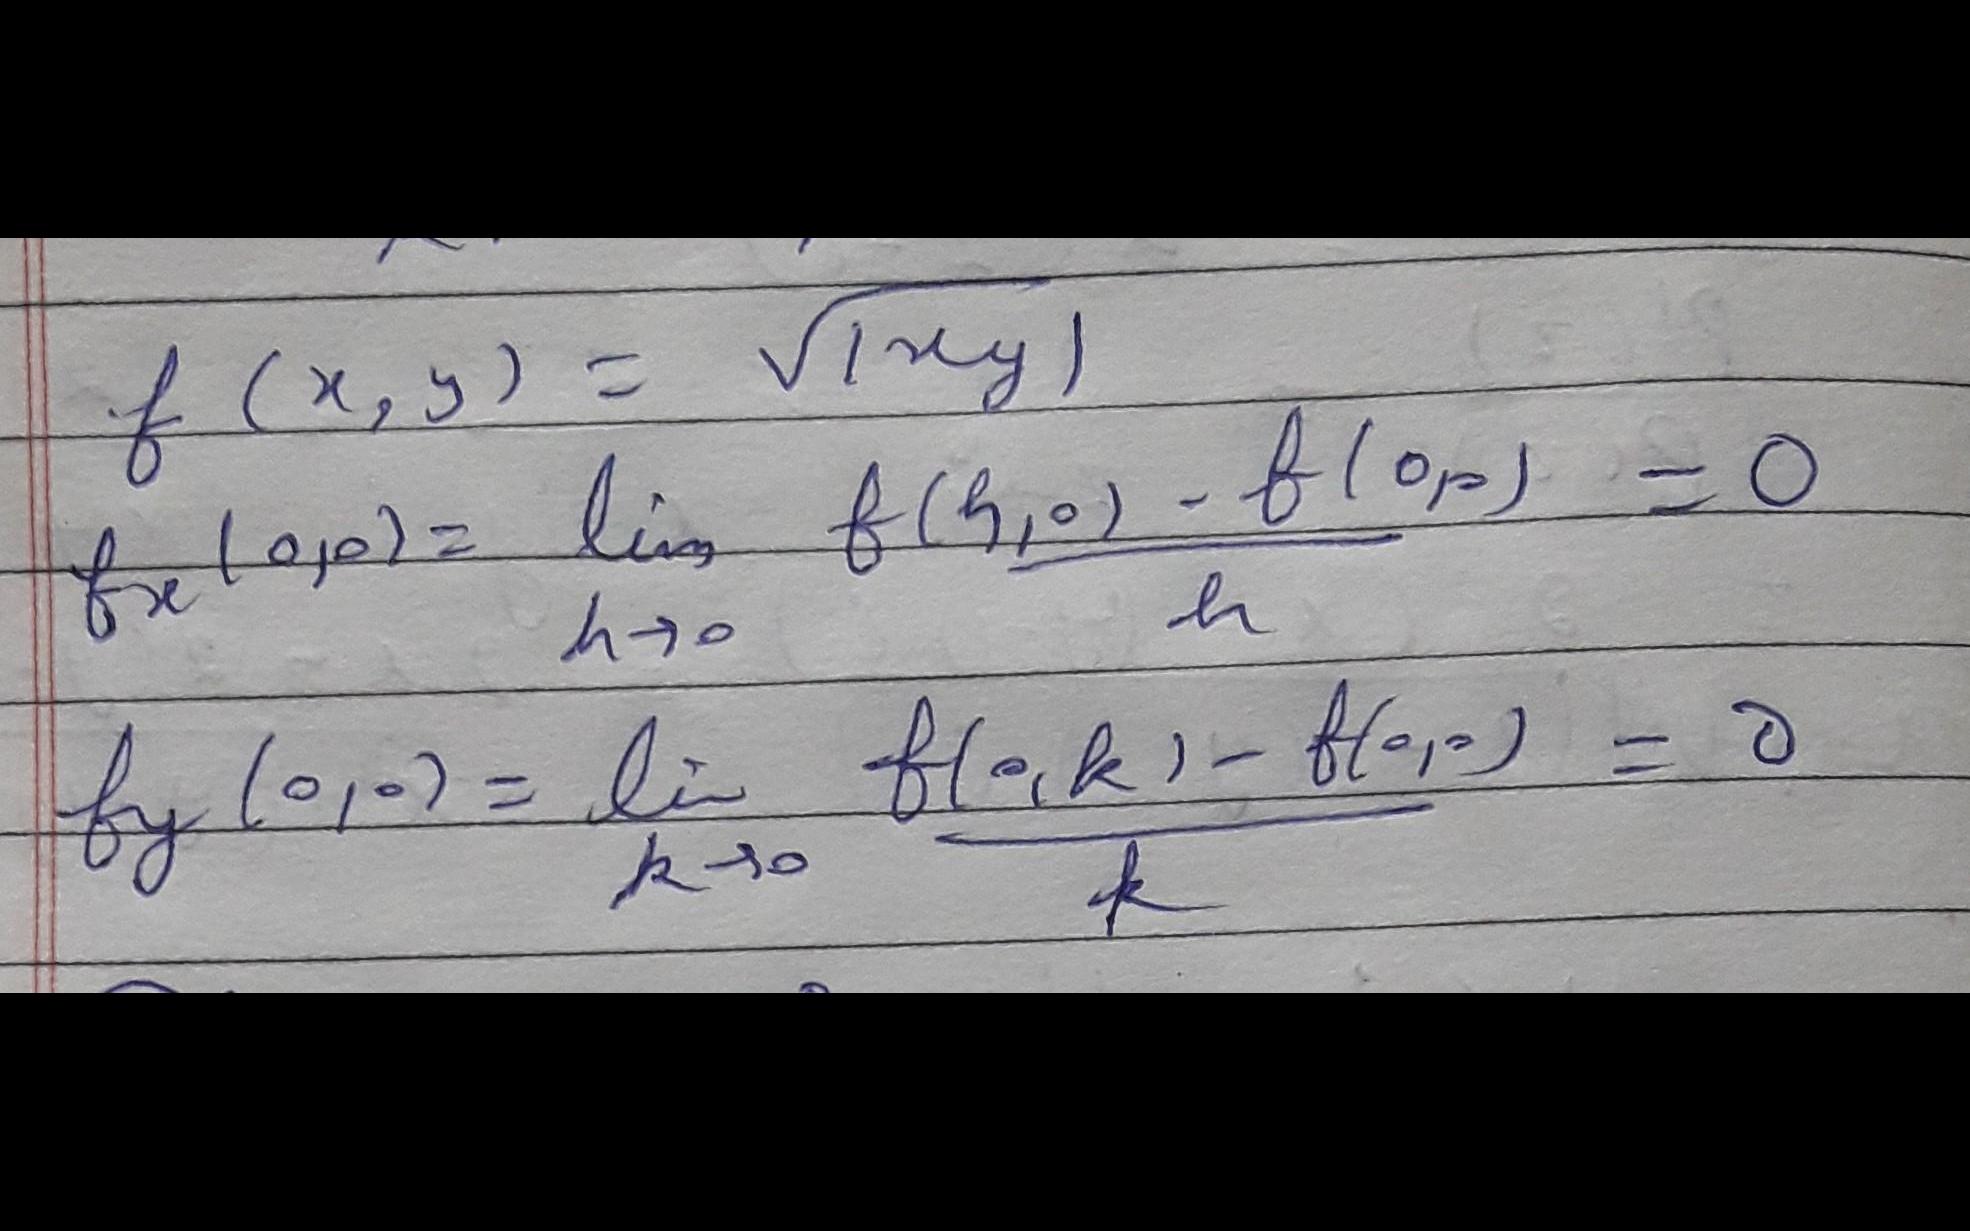 f (x, y) = √|xy|
fx (0,0) = lim h→0 f(h,0) - f(0,0) / h = 0
fy (0,0) = lim k→0 f(0,k) - f(0,0) / k = 0